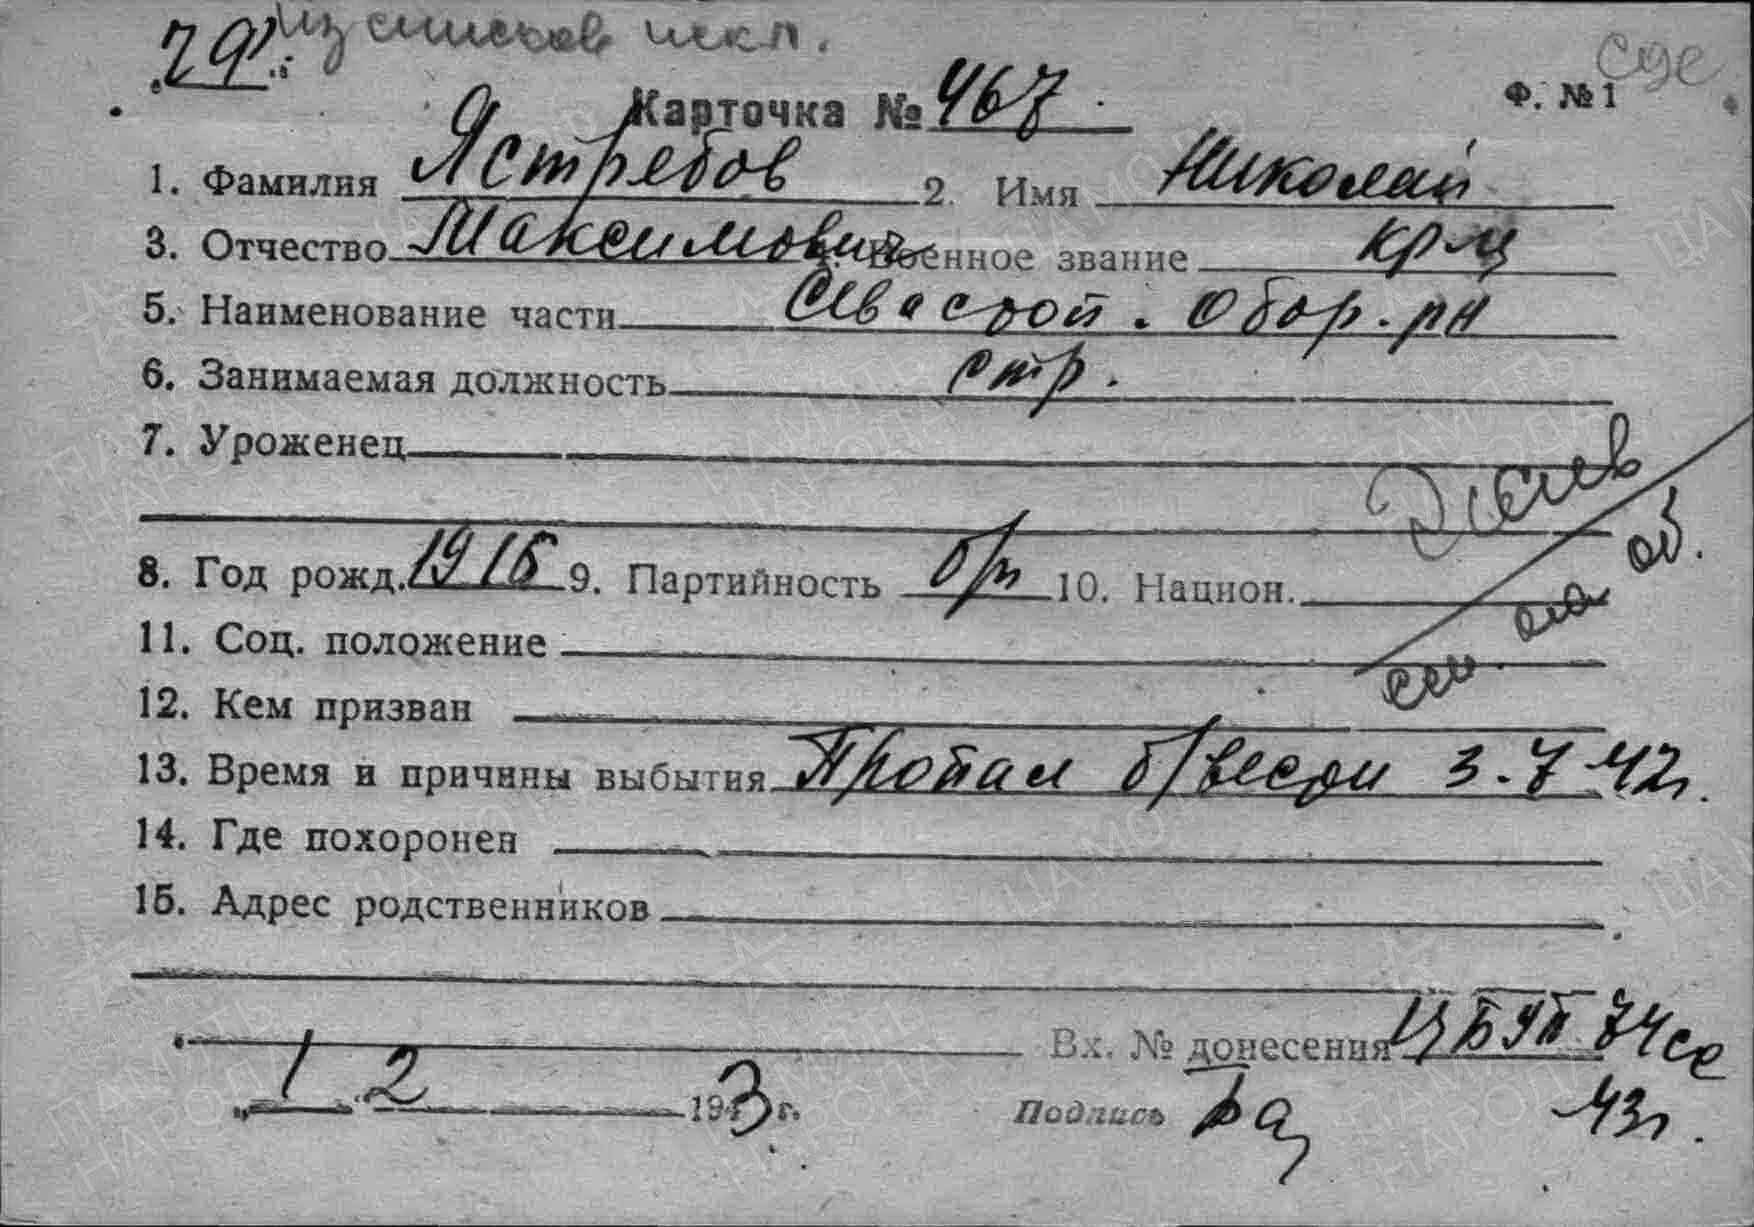 79. из списков искл.
сде
Карточка № 467. Ф. № 1
1. Фамилия Ястребов 2. Имя Николай
3. Отчество Максимович 4. Военное звание кр-ц
5. Наименование части Севастоп. Обор. рн
6. Занимаемая должность стр.
7. Уроженец
8. Год рожд. 1916 9. Партийность б/п 10. Национ.
11. Соц. положение
12. Кем призван
13. Время и причины выбытия Пропал б/вести 3.7 42г.
14. Где похоронен
15. Адрес родственников
Вх. № донесения ЦБУП 74сс
„1" 2 1943 г. Подпись 43г.